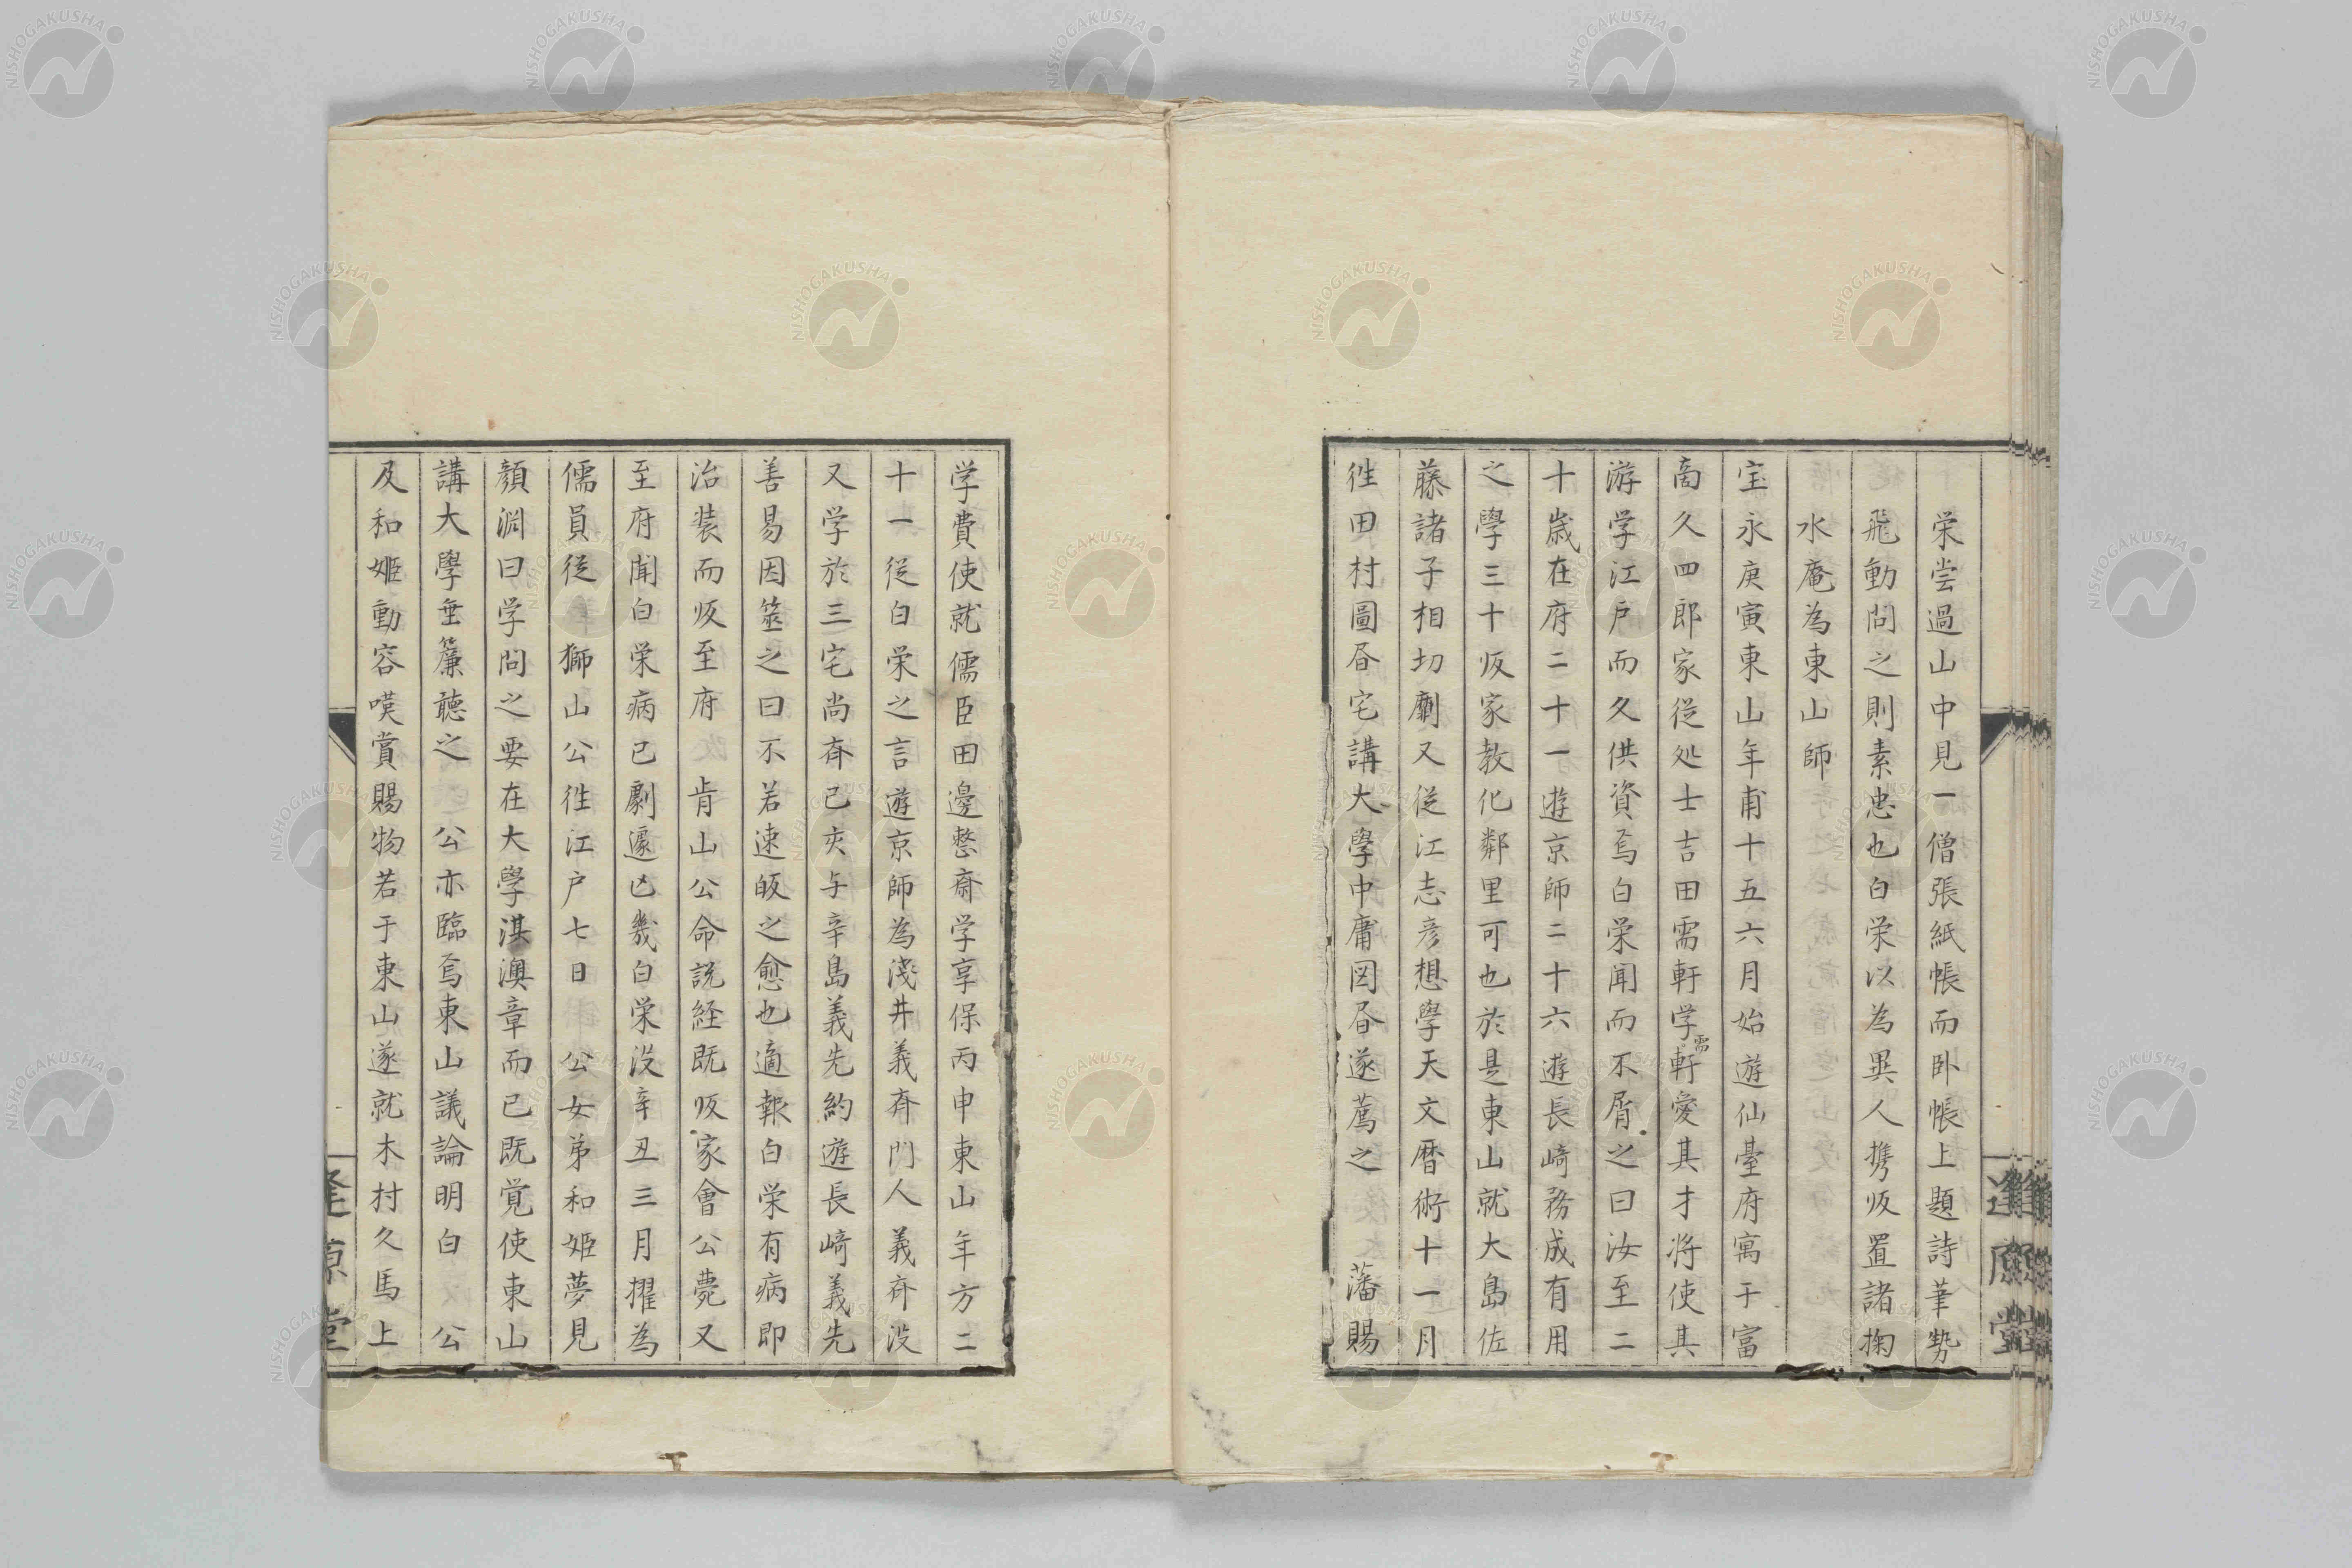 栄尝過山中見一僧張紙帳而卧帳上題詩筆勢
飛動問之則素忠也白栄以為異人携皈置諸掬
水庵為東山師
宝永庚寅東山年甫十五六月始遊仙臺府寓于富
商久四郎家従処士吉田需軒学需軒愛其才将使其
游学江戸而久供資焉白栄聞而不屑之曰汝至二
十歳在府二十一遊京師二十六遊長崎務成有用
之學三十皈家教化鄰里可也於是東山就大島佐
藤諸子相切劘又従江志彦想學天文暦術十一月
徃田村圖㫺宅講大學中庸図㫺遂薦之 藩賜
学費使就儒臣田邊整齋学享保丙申東山年方二
十一従白栄之言遊京師為淺井義斉門人義斉没
又学於三宅尚斉已而与辛島義先約遊長崎義先
善易因筮之曰不若速皈之愈也適報白栄有病即
治装而皈至府 肯山公命説経既皈家會公薨又
至府聞白栄病已劇遽亡幾白栄没辛丑三月擢為
儒員従 獅山公徃江戸七日 公女弟和姫夢見
顔淵曰学問之要在大學淇澳章而已既覚使東山
講大學垂簾聴之 公亦臨焉東山議論明白 公
及和姫動容嘆賞賜物若干東山遂就木村久馬上
逢原堂
NISHOGAKUSHA